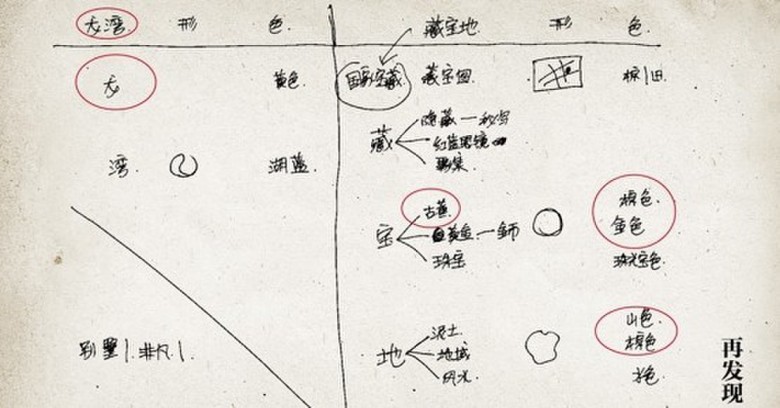 龙湾 形 色
藏宝地 形 色
龙 黄色
国家宝藏 藏宝图 棕/旧
湾 湖蓝
藏
隐藏—秘密
红蓝眼镜
聚集
宝
古董
黄金
珠宝
棕色
金色
珠光宝色
别墅/非凡/
地
泥土
地域
山色
棕色
水色
再发现